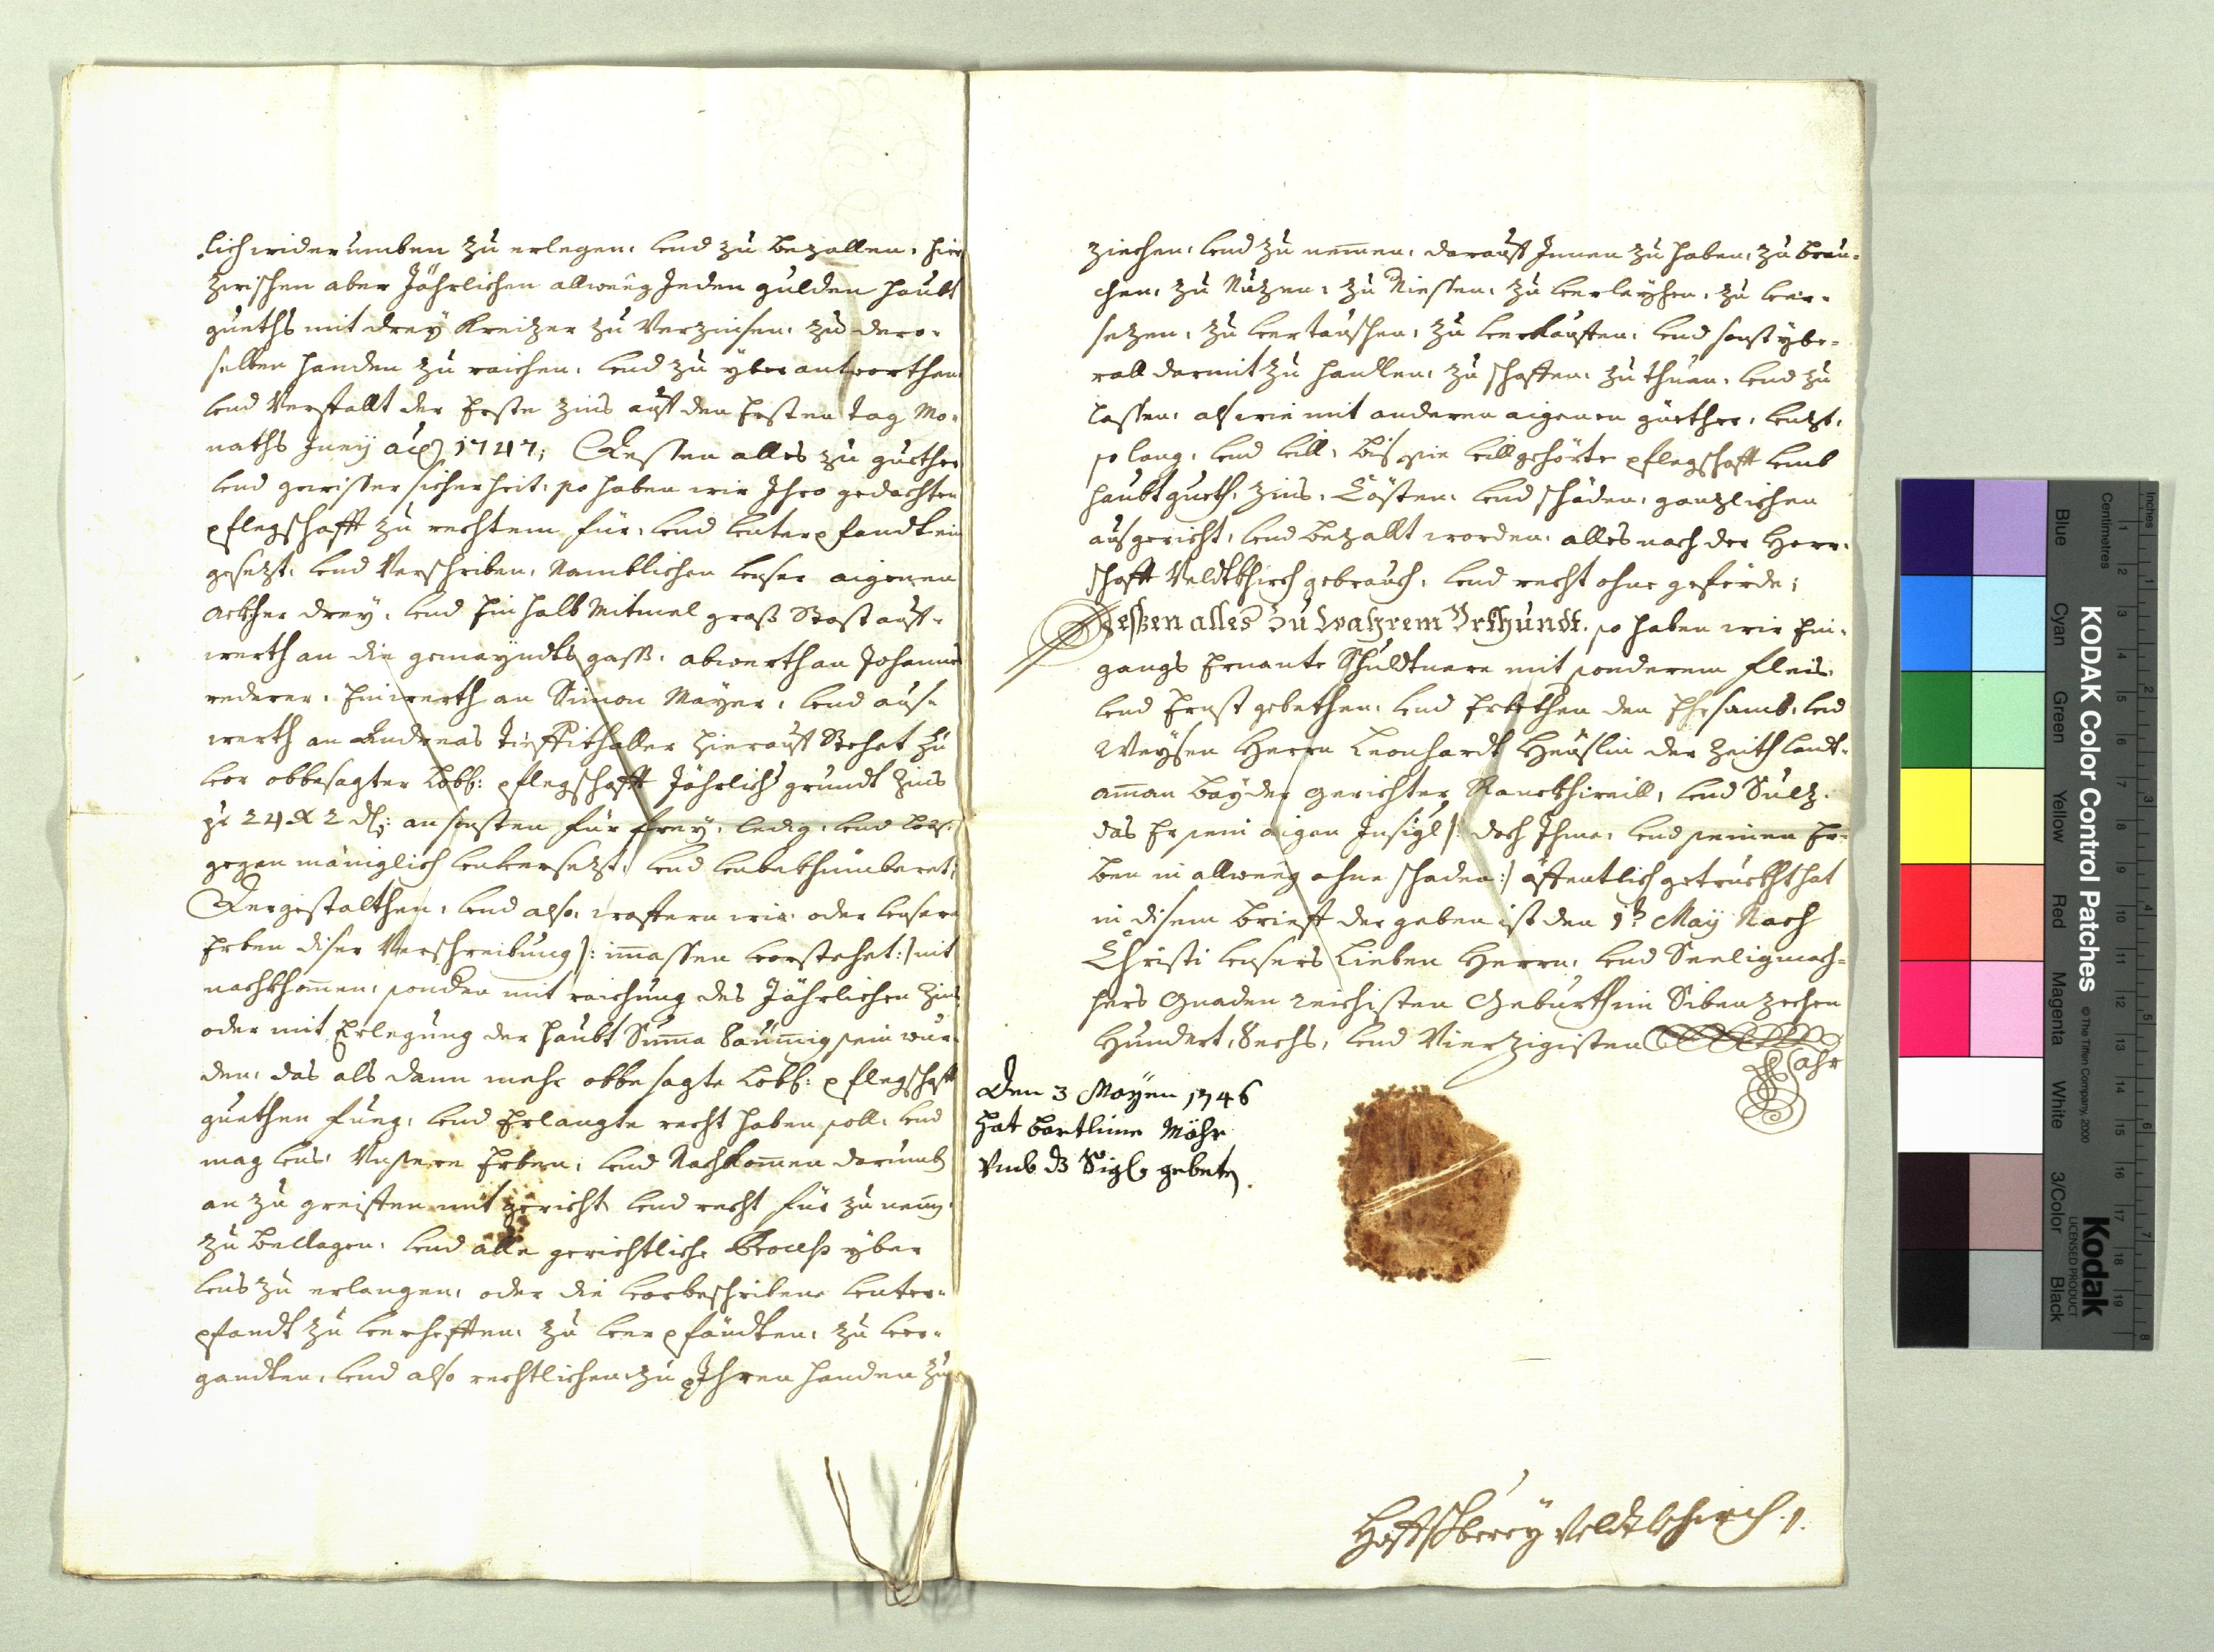 lich widerumben zu erlegen, und zu bezallen, hier
zwischen aber Jährlichen allweeg Jeden gulden haubt
gueths mit drey Kreitzer zu Verzinsen, zu dero-
selben handen zu raichen, und zu yberantworthen,
und Verfallt der Erste Zins auff den Ersten tag Mo-
naths Junij 1747; Dessen alles zu guether
und gewisser sicherheit, so haben wir Ihro gedachten
pflegschafft zu rechtem für, und unterpfandt ein
gesezt, und Verschriben, Namblichen unser aigenen
ackher drey, und Ein halb Mitmel groß Stost auff-
werth an die gemayndts gaß, abwerth an Johannes
rederer, Einwerth an Simon Mayer, und aus-
werth an Andreas Tieffithaller hierauff Stehet zu
vor obbesagter Löbl: pflegschafft Jährlich grundt Zins
24 x 2 dl; ansonsten für frey, ledig, und los,
gegen mäniglich unversezt, und unbekhümberet;
Dergestalthen, und also, wofern wir oder unsere
Erben diser Verschreibung /: immassen vorstehet :/ nit
nachkhommen, sonder mit raichung des Jährlichen Zins
oder mit Erlegung der haubt Summa Säumig sein wur-
den, das als dann mehr obbesagte Löbl: pflegschafft
guethen fueg, und Erlangte recht haben soll, und
mag uns, Unsere Erben, und Nachkommen darumb
an zu greiffen mit gericht und recht für zu nemen,
zu beklagen, und alle gerichtliche Process yber
uns zu erlangen, oder die vorbeschribene unter-
pfandt zu verhefften, zu verpfändten, zu ver-
gandten, und also rechtlichen zu Ihren handen zu
ziechen, und zu nemen, darauff Innen zu haben, zu brau-
chen, zu Nutzen, zu Niessen, zu verleyhen, zu ver-
setzen, zu vertauschen, zu verkauffen, und sonst ybe-
rall darmit zu handlen, zu schaffen, zu thuen, und zu
lassen, als wie mit anderen aigenen güether,
so lang, und vill, bis sie villgehörte pflegschafft umb
haubtgueth, Zins, Cösten, und schäden, ganzlichen
ausgericht, und bezallt worden, alles nach der Herr-
schafft Veldtkhirch gebrauch, und recht ohne geferde;
Dessen alles Zu wahrem Vrkhundt, so haben wir Ein-
gangs Ernante Schuldtnere mit sonderem fleis,
und Ernst gebethen, und Erbethen den Ehrsamb, und
Weysen Herrn Leonhardt Heüslin der Zeith Landt-
aman bayder gerichter Ranckhweill, und Sulz,
das Er sein aigen Insigl /: doch Ihme, und seinen Er-
ben in allweeg ohne schaden :/ öffentlich getruckht hat
in disem brieff der geben ist den 1t May Nach
Christi unsers Lieben Herrn, und Seeligmach-
hers Gnaden reichisten Geburth im Siben zechen
Hundert, Sechs, und Vierzigisten
Jahr
Den 3 Mayen 1746
hat bartlime Mähr
Vmb dz Sigl gebeten.
Hoffschberey Veldtkhirch.